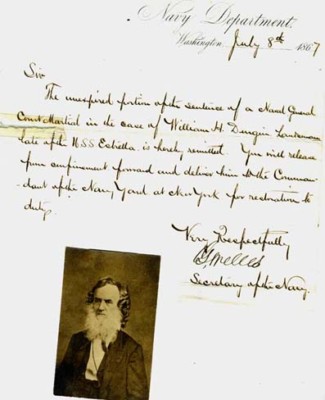 Navy Department.
Washington, July 8th 1867
Sir
The unexpired portion of the sentence of a Naval General
Court Martial in the case of William H. Landsman
late of the USS Estrella is hereby remitted. You will release
from confinement forward and deliver him to the Comman
dant of the Navy Yard at New York for restoration to
duty.
Very Respectfully
G Welles
Secretary of the Navy.